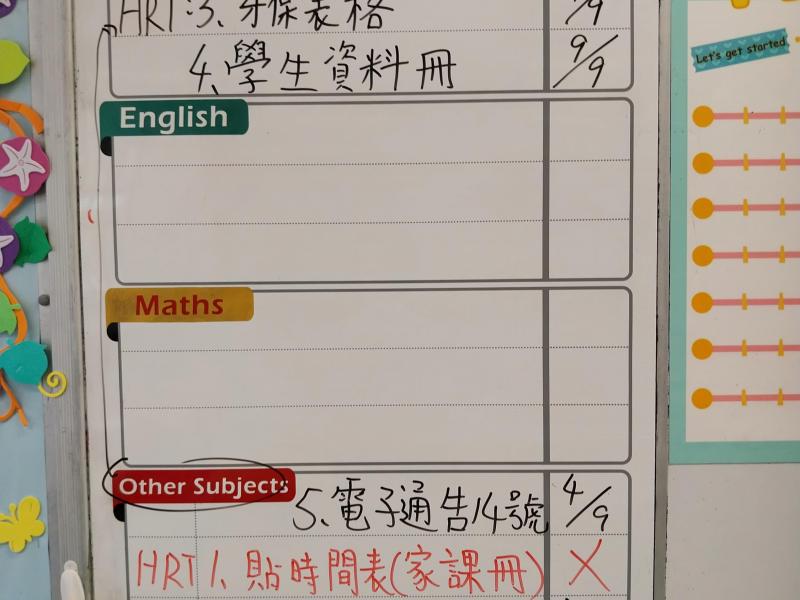 HRT:3、牙保表格 /9
4、學生資料冊 9/9
Let's get started
English
Maths
Other Subjects
5、電子通告14號 4/9
HRT 1、貼時間表(家課冊) X